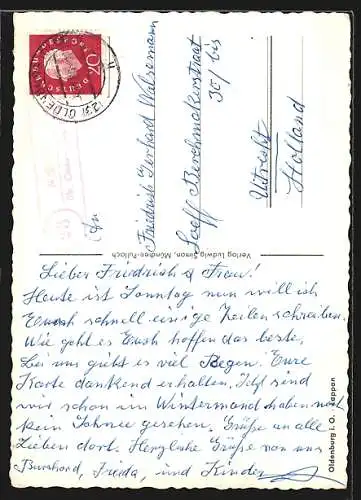 Lieber Friedrich & Frau!
Heute ist Sonntag nun will ich
Euch schnell einige Zeilen schreiben.
Wie geht es Euch hoffen das beste.
Bei uns giebt es viel Regen. Eure
Karte dankend erhalten. Jetzt sind
wir schon im Wintermond haben noch
kein Schnee gesehen. Grüße an alle
Lieben dort. Herzliche Grüße von uns
Burchard, Frieda, und Kinder
An
Friedrich Gerhard
30/ bis
Utrecht
Holland
Verlag Ludwig Simon, München-Pullach
Oldenburg i. O. Lappan
DEUTSCHE BUNDESPOST
20
(23) OLDENBURG